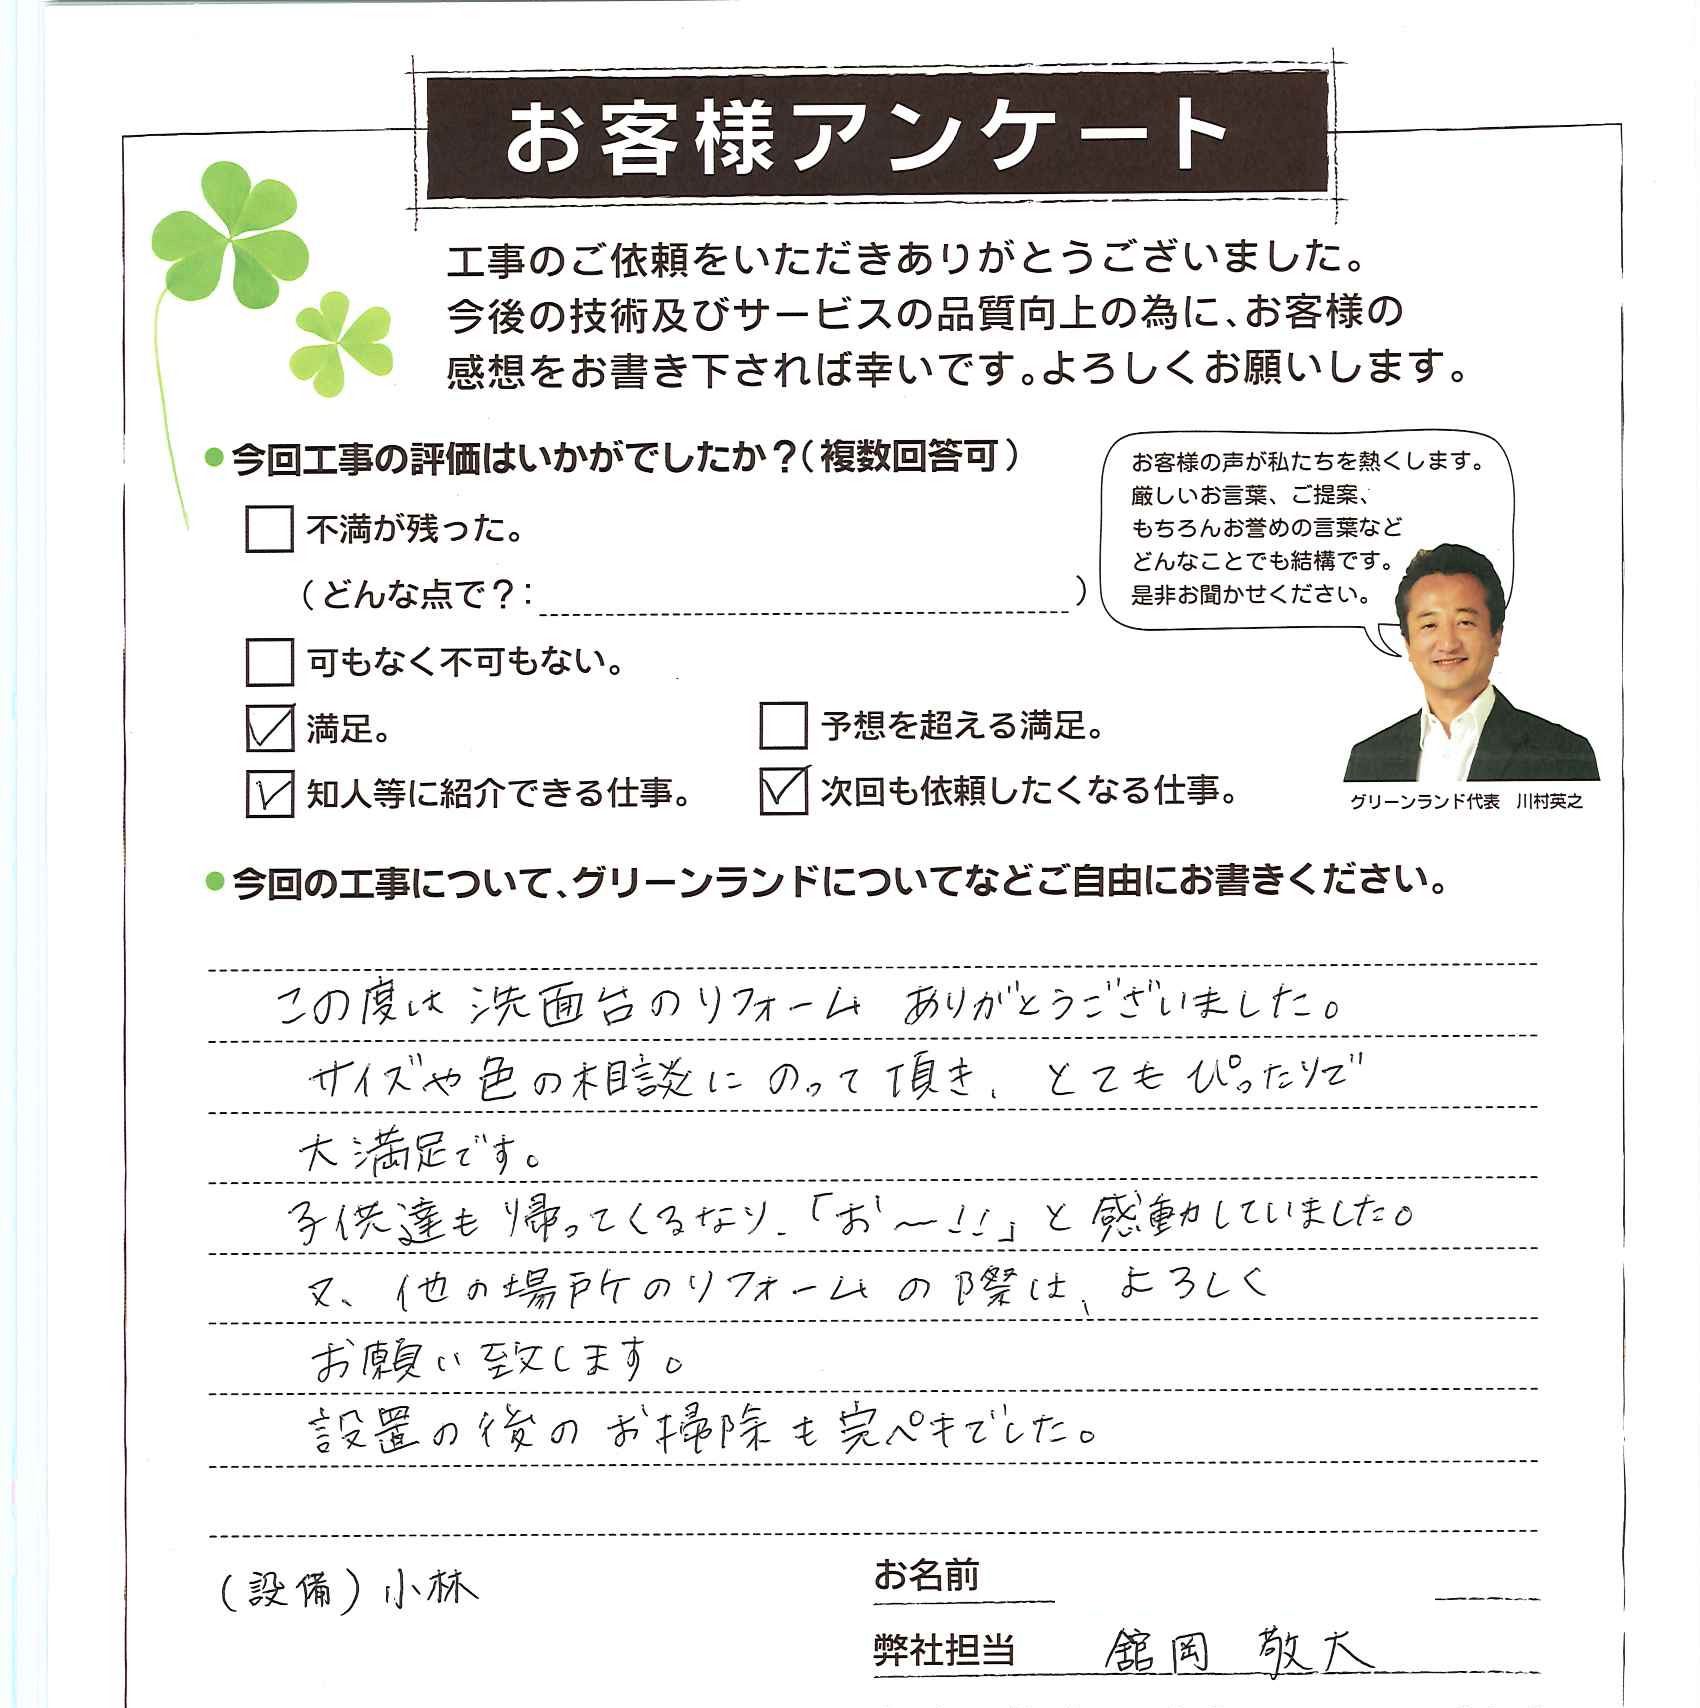 お客様アンケート
工事のご依頼をいただきありがとうございました。
今後の技術及びサービスの品質向上の為に、お客様の
感想をお書き下されば幸いです。よろしくお願いします。
●今回工事の評価はいかがでしたか?(複数回答可)
お客様の声が私たちを熱くします。
厳しいお言葉、ご提案、
もちろんお誉めの言葉など
どんなことでも結構です。
是非お聞かせください。
グリーンランド代表 川村英之
不満が残った。
(どんな点で?: )
可もなく不可もない。
満足。
予想を超える満足。
知人等に紹介できる仕事。
次回も依頼したくなる仕事。
●今回の工事について、グリーンランドについてなどご自由にお書きください。
この度は洗面台のリフォーム ありがとうございました。
サイズや色の相談にのって頂き、とてもぴったりで
大満足です。
子供達も帰ってくるなり、「お〜!!」と感動していました。
又、他の場所のリフォームの際は、よろしく
お願い致します。
設置の後のお掃除も完ペキでした。
(設備)小林
お名前
弊社担当 舘岡 敬大